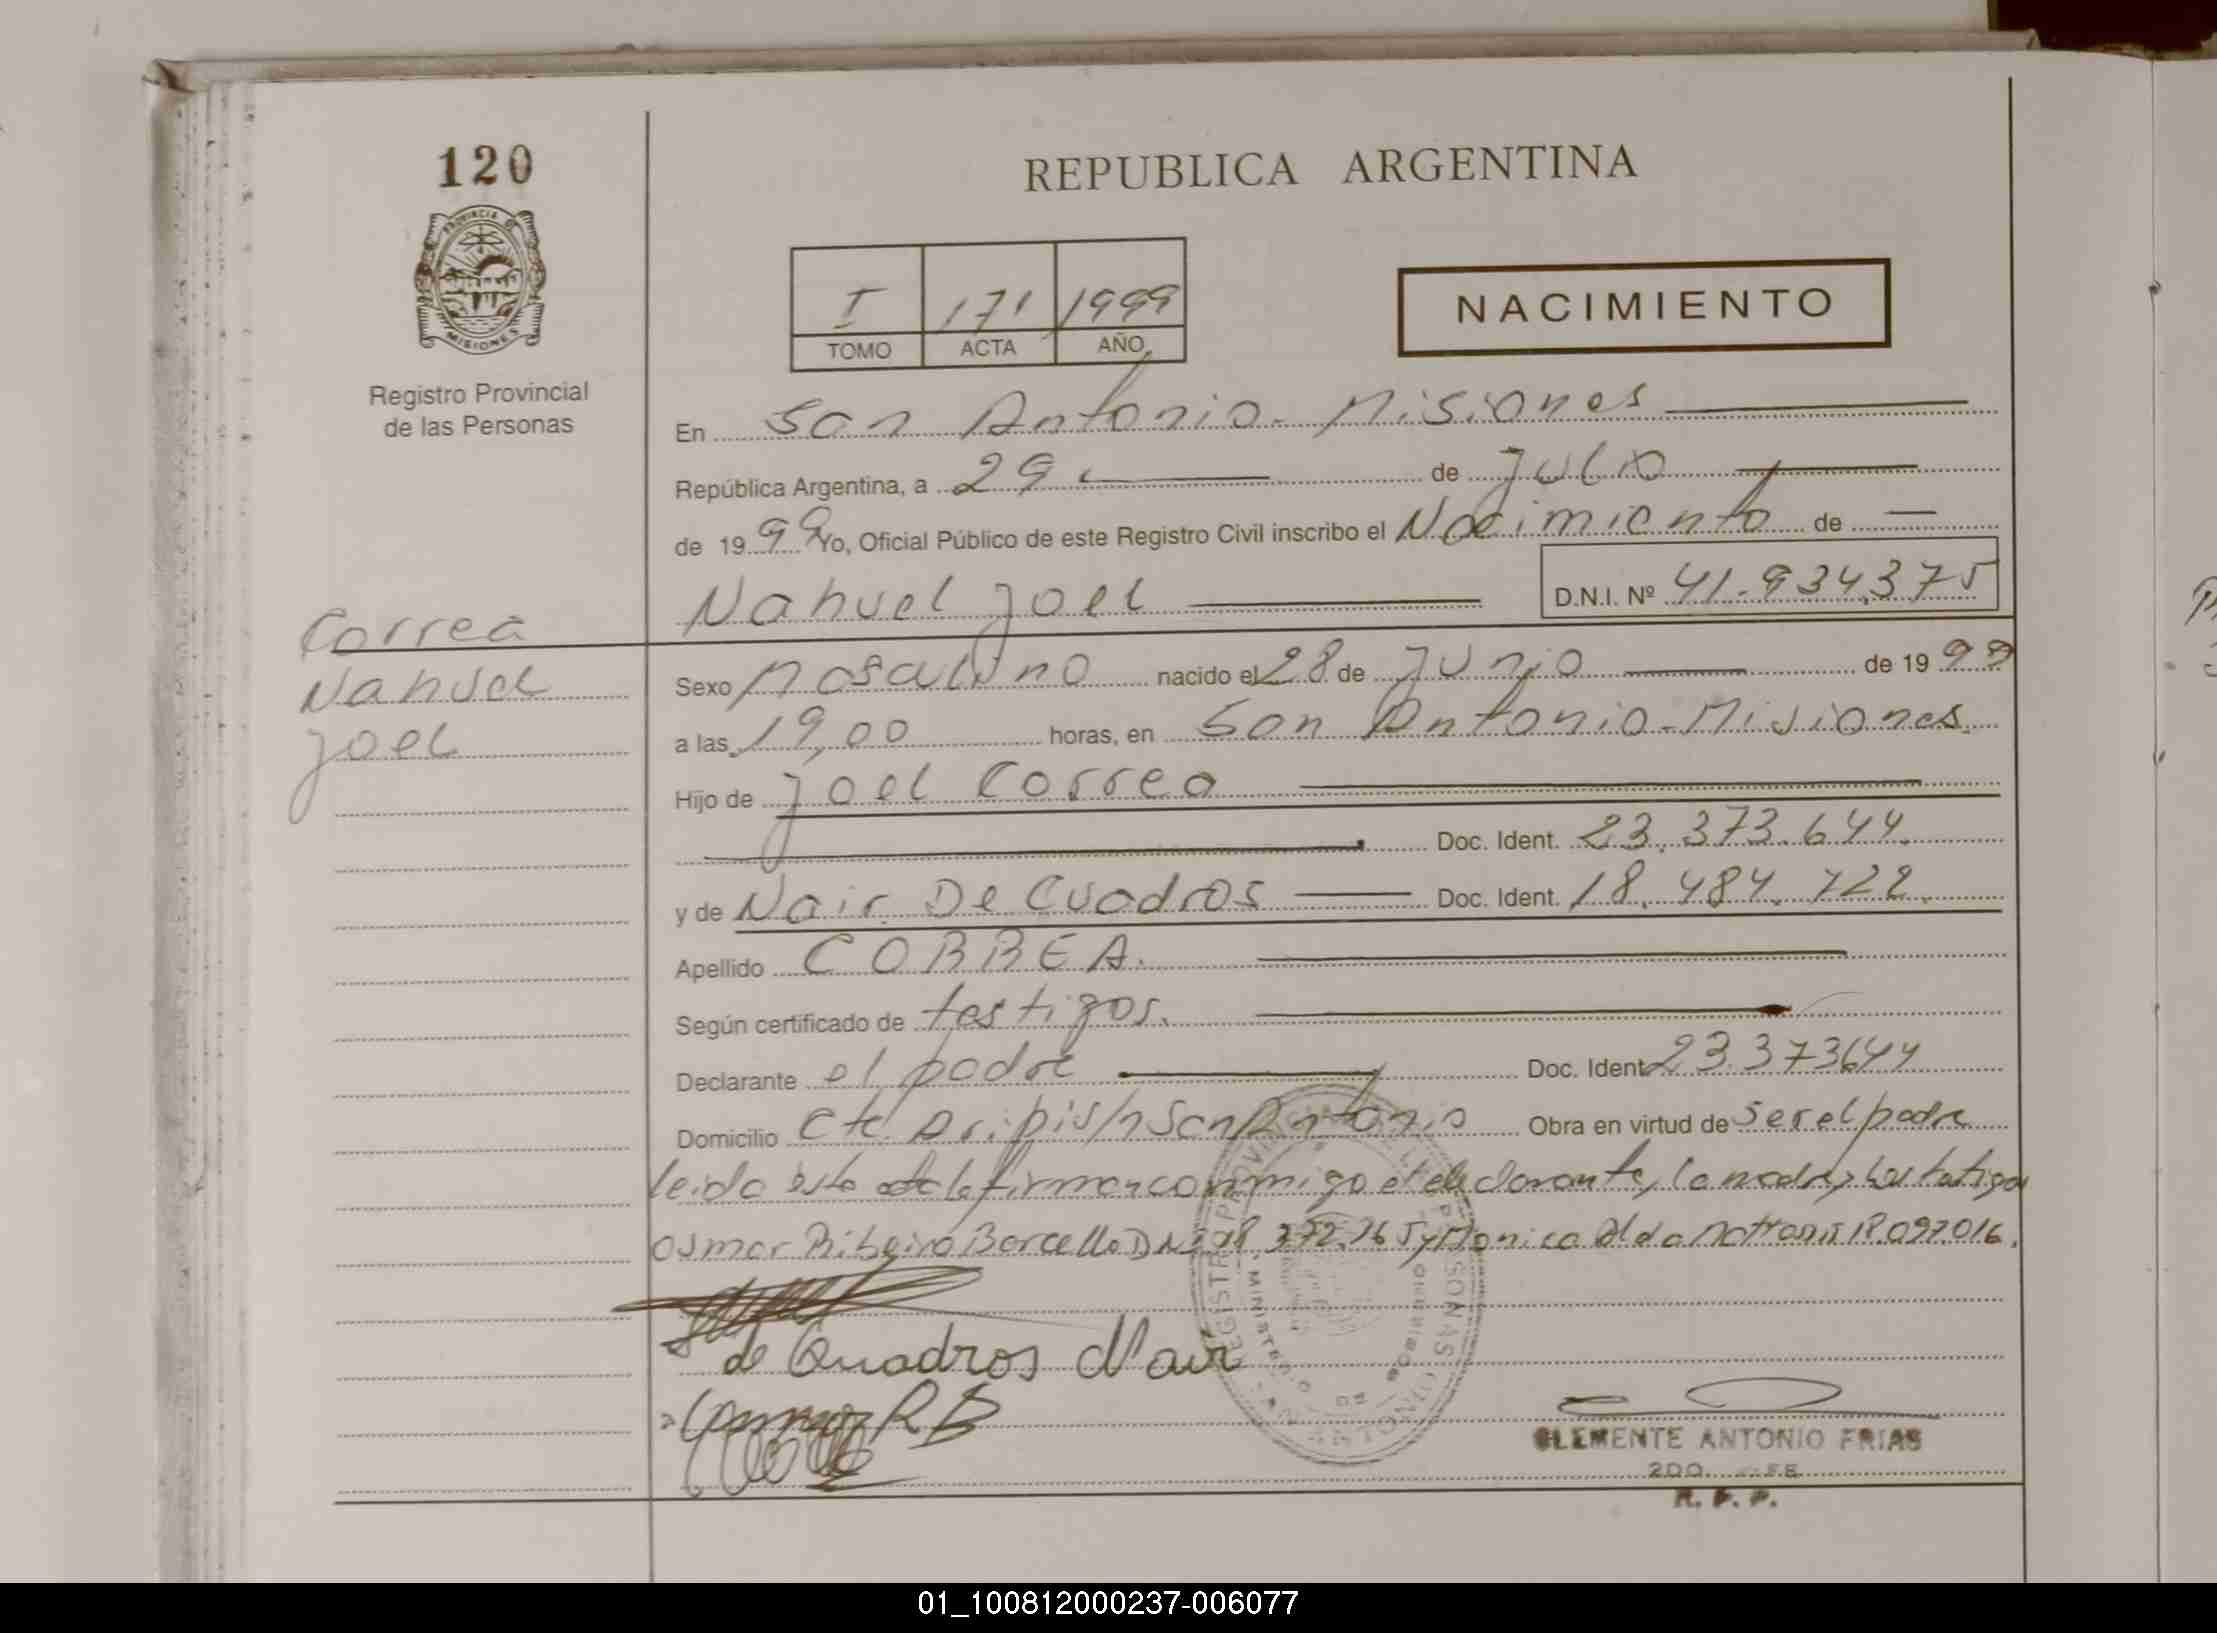 120
REPUBLICA ARGENTINA
PROVINCIA DE MISIONES
Registro Provincial
de las Personas
I 171 1999
TOMO ACTA AÑO
NACIMIENTO
En San Antonio - Misiones
República Argentina, a 29 de Julio
de 1999 Yo, Oficial Público de este Registro Civil inscribo el Nacimiento de
Nahuel Joel D.N.I. Nº 41.934.375
Correa
Nahuel
Joel
Sexo Masculino nacido el 28 de Junio de 1999
a las 19,00 horas, en San Antonio - Misiones.
Hijo de Joel Correa
Doc. Ident. 23.373.644.
y de Nair De Cuadros Doc. Ident. 18.484.722.
Apellido CORREA.
Según certificado de testigos.
Declarante el padre Doc. Ident 23.373644
Domicilio s/n San Antonio Obra en virtud de ser el padre
leida esta acta la firman conmigo el declarante, la madre y los testigos
Osmar Ribeiro Barcello DNI 18.372.765 y Monica 18.097.016.
de Quadros Nair
R B
CLEMENTE ANTONIO FRIAS
2DO. JEFE
R. P. P.
01_100812000237-006077